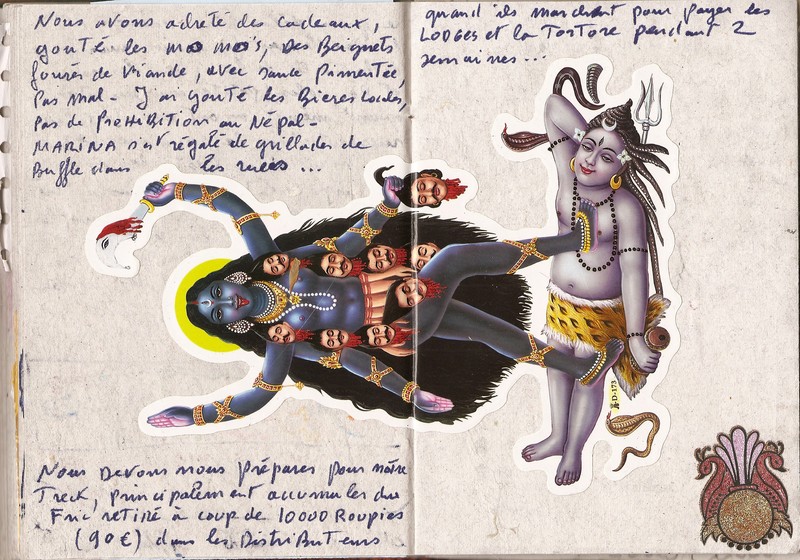 Nous avons acheté des cadeaux,
gouté les mo mo's, Des Beignets
fourés de Viande, avec sauce Pimentée,
Pas mal - J'ai gouté les Bieres Locales,
Pas de ProHiBition au Népal -
MARINA s'est régalé de grillades de
Buffle dans les rues ...
Nous Devons nous préparer pour notre
Treck, principalement accumuler du
Fric retiré à coup de 10000 Roupies
(90€) dans les DistriButeurs
quand ils marchent pour payer les
LODGES et la Tortore pendant 2
semaines ...
D-173